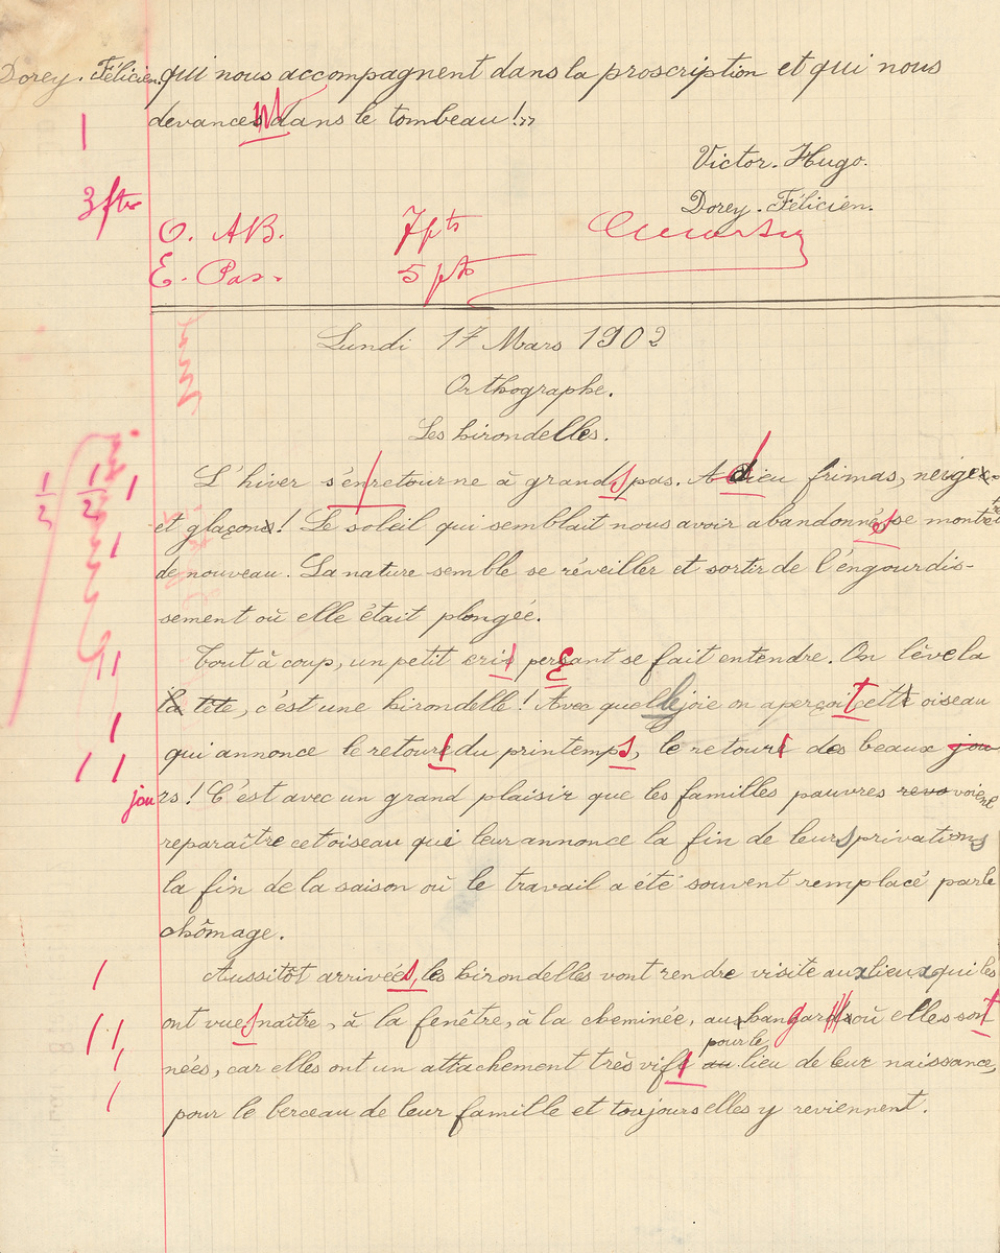 Dorey. Félicien. qui nous accompagnent dans la proscription et qui nous
devances dans le tombeau !»
1
Victor. Hugo.
3 fts
Dorey. Félicien.
O. AB. 7 pts
E. Pas. 5 pts
Lundi 17 Mars 1902
Orthographe.
Les hirondelles.
L'hiver s'en retourne à grands pas. Adieu frimas, neige
et glaçons ! Le soleil qui semblait nous avoir abandonnés se montre
de nouveau. La nature semble se réveiller et sortir de l'engourdis-
sement où elle était plongée.
Tout à coup, un petit cri perçant se fait entendre. On lève la
la tête, c'est une hirondelle ! Avec quelle joie on aperçoit cet oiseau
qui annonce le retour du printemps, le retour des beaux jou
jours ! C'est avec un grand plaisir que les familles pauvres revo voient
reparaître cet oiseau qui leur annonce la fin de leurs privations
la fin de la saison où le travail a été souvent remplacé par le
chômage.
Aussitôt arrivées, les hirondelles vont rendre visite aux lieux qui les
ont vues naître, à la fenêtre, à la cheminée, au hangar où elles sont
pour le
nées, car elles ont un attachement très vif au lieu de leur naissance,
pour le berceau de leur famille et toujours elles y reviennent.